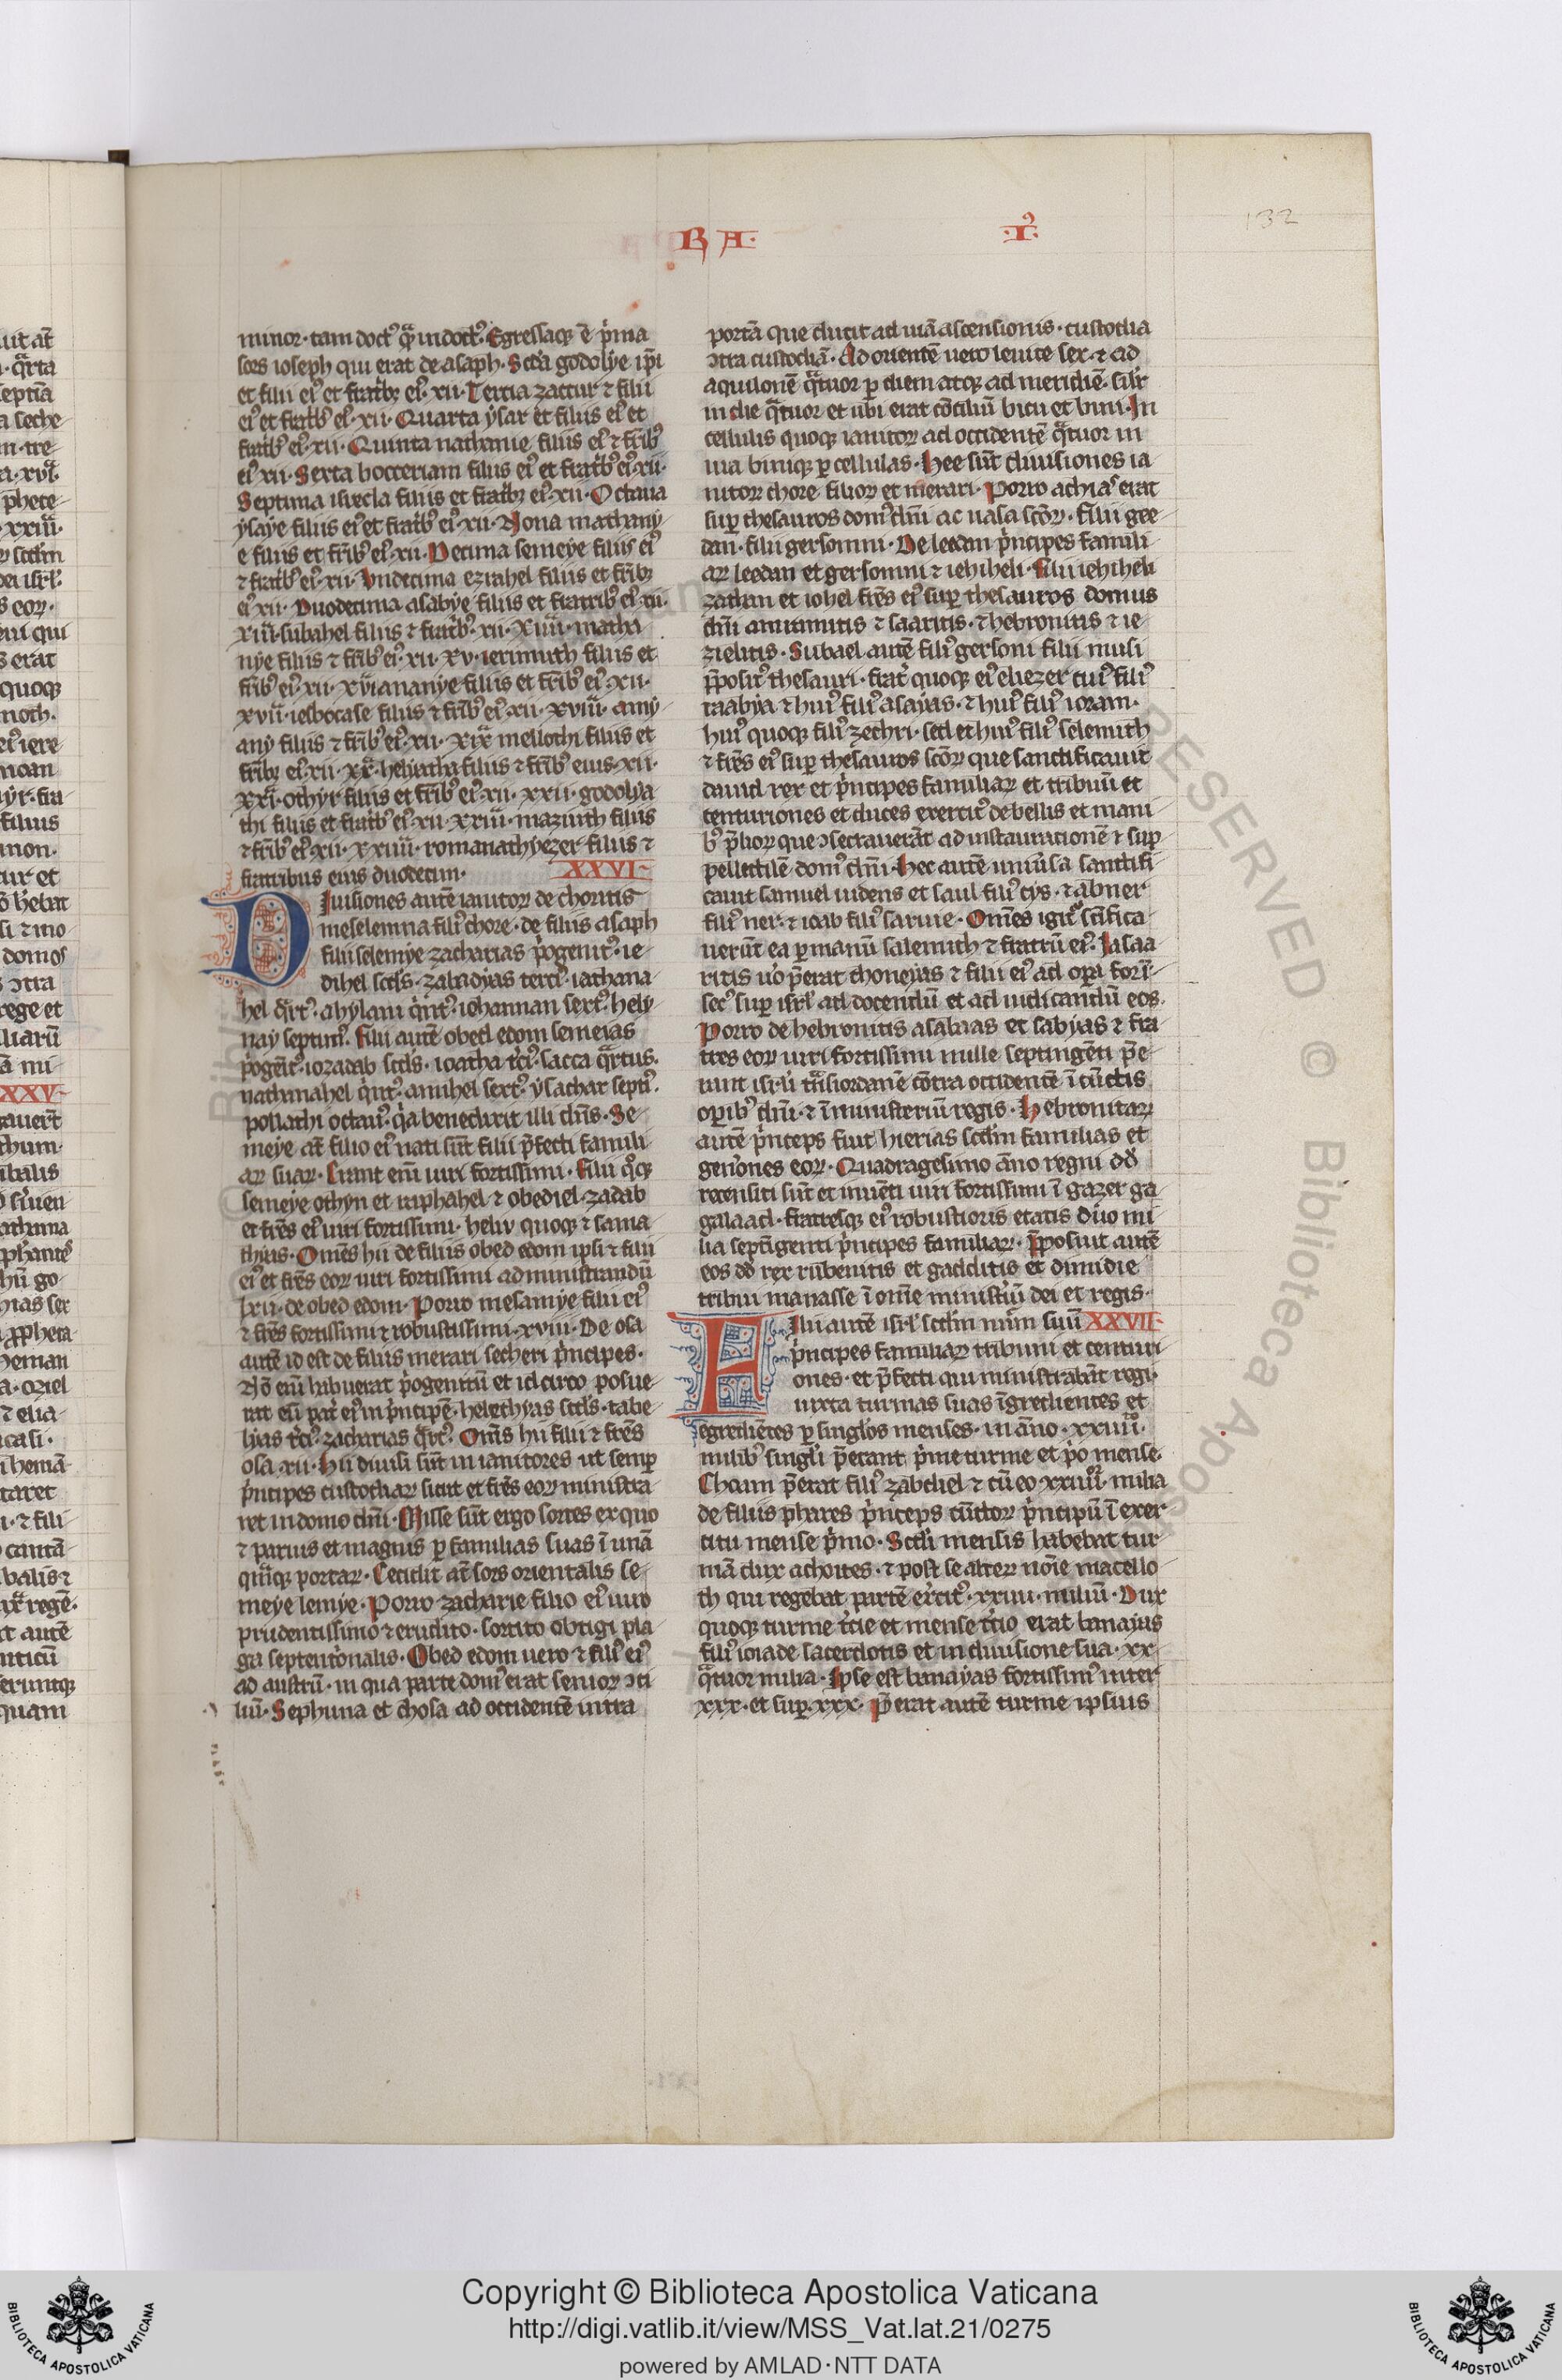 BA
·I·
132
minor· tam doct᾽ q̄ᷓ indoct᾽· Egressaq; ē p̓ma
sors ioseph qui erat de asaph· Scd̓a godolye ip̄i
et filii ei᾽ et fratrib; ei᾽ xii· Tertia zaccur ⁊ filii
ei᾽ et fratrib᾽ ei᾽ xii· Quarta ysar et filiis ei᾽ et
fratrib᾽ ei᾽ xii· Quinta nathanie filiis ei᾽ ⁊ fr̄ib᾽
ei᾽ xii· Sexta bocceriam filiis ei᾽ et fratrib᾽ ei᾽ xii·
Septima isrecla filiis et fratrib; ei᾽ xii· Octaua
ysaye filiis ei᾽ et fratrib᾽ ei᾽ xii· Nona mathany
e filiis et fr̄ib᾽ ei᾽ xii· Decima semeye filiis ei᾽
⁊ fratrib᾽ ei᾽ xii· Undecima ezrahel filiis et fr̄ib;
ei᾽ xii· Duodecima asabye filiis et fratrib᾽ ei᾽ xii·
xiii· subahel filiis ⁊ fratrib᾽ xii· xiiii· matha
nye filiis ⁊ fr̄ib᾽ ei᾽ xii· xv· ierimuth filiis et
fr̄ib᾽ ei᾽ xii· xvi ananye filiis et fr̄ib᾽ ei᾽ xii·
xvii· iesbocase filiis ⁊ fr̄ib᾽ ei᾽ xii· xviii· amy
any filiis ⁊ fr̄ib᾽ ei᾽ xii· xix mellothi filiis et
fr̄ib; ei᾽ xii· xx· heliatha filiis ⁊ fr̄ib᾽ eius xii·
xxi· othyr filiis et fr̄ib᾽ ei᾽ xii· xxii· godolya
thi filiis et fratrib᾽ ei᾽ xii· xxiii· maziuth filiis
⁊ fr̄ib᾽ ei᾽ xii· xxiiii· romanathyezer filiis ⁊
fratribus eius duodecim· XXVI
Diuisiones autē ianitor̄ de choritis
meselemna fili᾽ chore· de filiis asaph
filii selemye zacharias p̓ogenit᾽· ie
dihel scd̄s· zabadyas terci᾽· iathana
hel q̄rt᾽· ahylam q̓nt᾽· iohannan sext᾽· hely
nay septim᾽· filii autē obed edom semeias
p̓ogēit᾽· iozadab scd̄s· ioatha t̓ci᾽· sacca q̄rtus·
nathanahel q̓nt᾽· amihel sext᾽· ysachar septi᾽·
pollathi octau᾽· q̓a benedixit illi dn̄s· Se
meye at̄ filio ei᾽ nati sūt filii p̄fecti famili
ar̄ suar̄· Erant em̄ uiri fortissimi· filii q̊q;
semeye othyn et raphahel ⁊ obediel zadab
et fr̄es ei᾽ uiri fortissimi· heliv quoq; ⁊ sama
thyas· Omēs hii de filiis obed edom ipsi ⁊ filii
ei᾽ et fr̄es eor̄ uiri fortissimi ad ministrandū
lxii· de obed edom· Porro mesamye filii ei᾽
⁊ fr̄es fortissimi ⁊ robustissimi· xviii· De osa
autē id est de filiis merari secheri p̓ncipes·
Nō em̄ habuerat p̓ogenitū et idcirco posue
rat eū pat̓ ei᾽ in p̓ncipē· helethyas scd̄s· tabe
lyas t̓ci᾽ zacharias q̄rt᾽· Om̄s hii filii ⁊ fr̄es
osa xii· Hii diuisi sūt in ianitores ut semp̱
p̓ncipes custodiar̄ sicut et fr̄es eor̄ ministra
ret in domo dn̄i· Misse sūt ergo sortes ex quo
⁊ paruis et magnis p̱ familias suas ī unā
quāq; portar̄· Cecidit at̄ sors orientalis se
meye lemye· Porro zacharie filio ei᾽ uiro
prudentissimo ⁊ erudito· sortito obtigi pla
ga septent̓onalis· Obed edom uero ⁊ fili᾽ ei᾽
ad austrū· in qua parte dom᾽ erat senior̄ ↄci
liū· Sephima et chosa ad occidentē iuxta
portā que ducit ad uiā ascensionis· custodia
ↄtra custodiā· Ad orientē uero leuite sex· ⁊ ad
aquilonē q̄tuor p̱ diem atq; ad meridiē· sil̓r
in die q̄tuor et ubi erat cōciliū bini et bini· In
cellulis quoq; ianitor̄ ad occidentē q̄tuor in
uia biniq; p̱ cellulas· Hee sūt diuisiones ia
nitor̄ chore filior̄ et merari· Porro achias erat
sup̱ thesauros dom᾽ dn̄i ac uasa scōr̄· filii gee
dan· filii gersonni· De leedan p̓ncipes famili
ar̄ leedan et gersonni ⁊ iehiheli· filii iehiheli
zathan et iohel fr̄es ei᾽ sup̱ thesauros domus
dn̄i amramitis ⁊ isaaritis· ⁊ hebronitis ⁊ ie
zielitis· Subael autē fili᾽ gersoni filii musi
p̄posit᾽ thesauri· frat̓ quoq; ei᾽ eliezer cui᾽ fili᾽
raabya ⁊ hui᾽ fili᾽ asayas· ⁊ hui᾽ fili᾽ ioram·
hui᾽ quoq; fili᾽ zechri· sed et hui᾽ fili᾽ selemith
⁊ fr̄es ei᾽ sup̱ thesauros scōr̄ que sanctificauit
dauid rex et p̓ncipes familiar̄ et tribuū et
centuriones et duces exercit᾽ de bellis et mani
b᾽ p̄lior̄ que ↄsecrauerāt ad instaurationē ⁊ sup̱
pellectilē dom᾽ dn̄i· Hec autē uniu̓sa sanctifi
cauit samuel uidens et saul fili᾽ cys· ⁊ abner
fili᾽ ner· ⁊ ioab fili᾽ saruie· Omēs igit̓ sc̄ifica
uerūt ea p̱ manū salemith ⁊ fratrū ei᾽· Isaa
ritis u̓o p̄erat choneyas ⁊ filii ei᾽ ad op̱a forī
sec᾽ sup̱ isrl̓ ad docendū et ad iudicandū eos·
Porro de hebronitis asabias et sabyas ⁊ fra
tres eor̄ uiri fortissimi mille septingēti p̄e
rant isrl̓i tn̄siordanē cōtra occidentē ī cūctis
op̱ib᾽ dn̄i· ⁊ ī ministeriū regis· Hebronitar̄
autē p̓nceps fuit hierias scd̄m familias et
gen̓ones eor̄· Quadragesimo āno regni dd̓
recensiti sūt et inuēti uiri fortissimi ī gazer ga
galaad· fratresq; ei᾽ robustioris etatis duo mi
lia septīgenti p̓ncipes familiar̄· P̄posuit autē
eos dd̓ rex rubenitis et gadditis et dimidie
tribui manasse ī om̄e minist̓iū dei et regis·
Filii autē isrl̓ scd̄m nūm suū XXVII
p̓ncipes familiar̄ tribuni et centuri
ones· et p̄fecti qui ministrabāt regi·
iuxta turmas suas īgredientes et
egrediētes p̱ singlos menses· in āno· xxiiii᾽
milib᾽ singl̓i p̄erant p̓me turme et p̓o mense·
Choam p̄erat fili᾽ zabdiel ⁊ cū eo xxiiii᾽ milia
de filiis phares p̓nceps cūctor̄ p̓ncipū ī exer
citu mense p̓mo· Scd̓i mensis habebat tur
mā dux achoites· ⁊ post se alter̄ nōie macello
th qui regebat partē ex̓cit᾽ xxiiii· miliū· Dux
quoq; turme t̓cie et mense t̓cio erat banayas
fili᾽ ioiade sacerdotis et in diuisione sua· xx
q̄tuor milia· Ipse est banayas fortissim᾽ inter
xxx· et sup̱ xxx· P̄erat autē turme ipsius
Copyright © Biblioteca Apostolica Vaticana
http://digi.vatlib.it/view/MSS_Vat.lat.21/0275
powered by AMLAD·NTT DATA
BIBLIOTECA APOSTOLICA VATICANA
BIBLIOTECA APOSTOLICA VATICANA